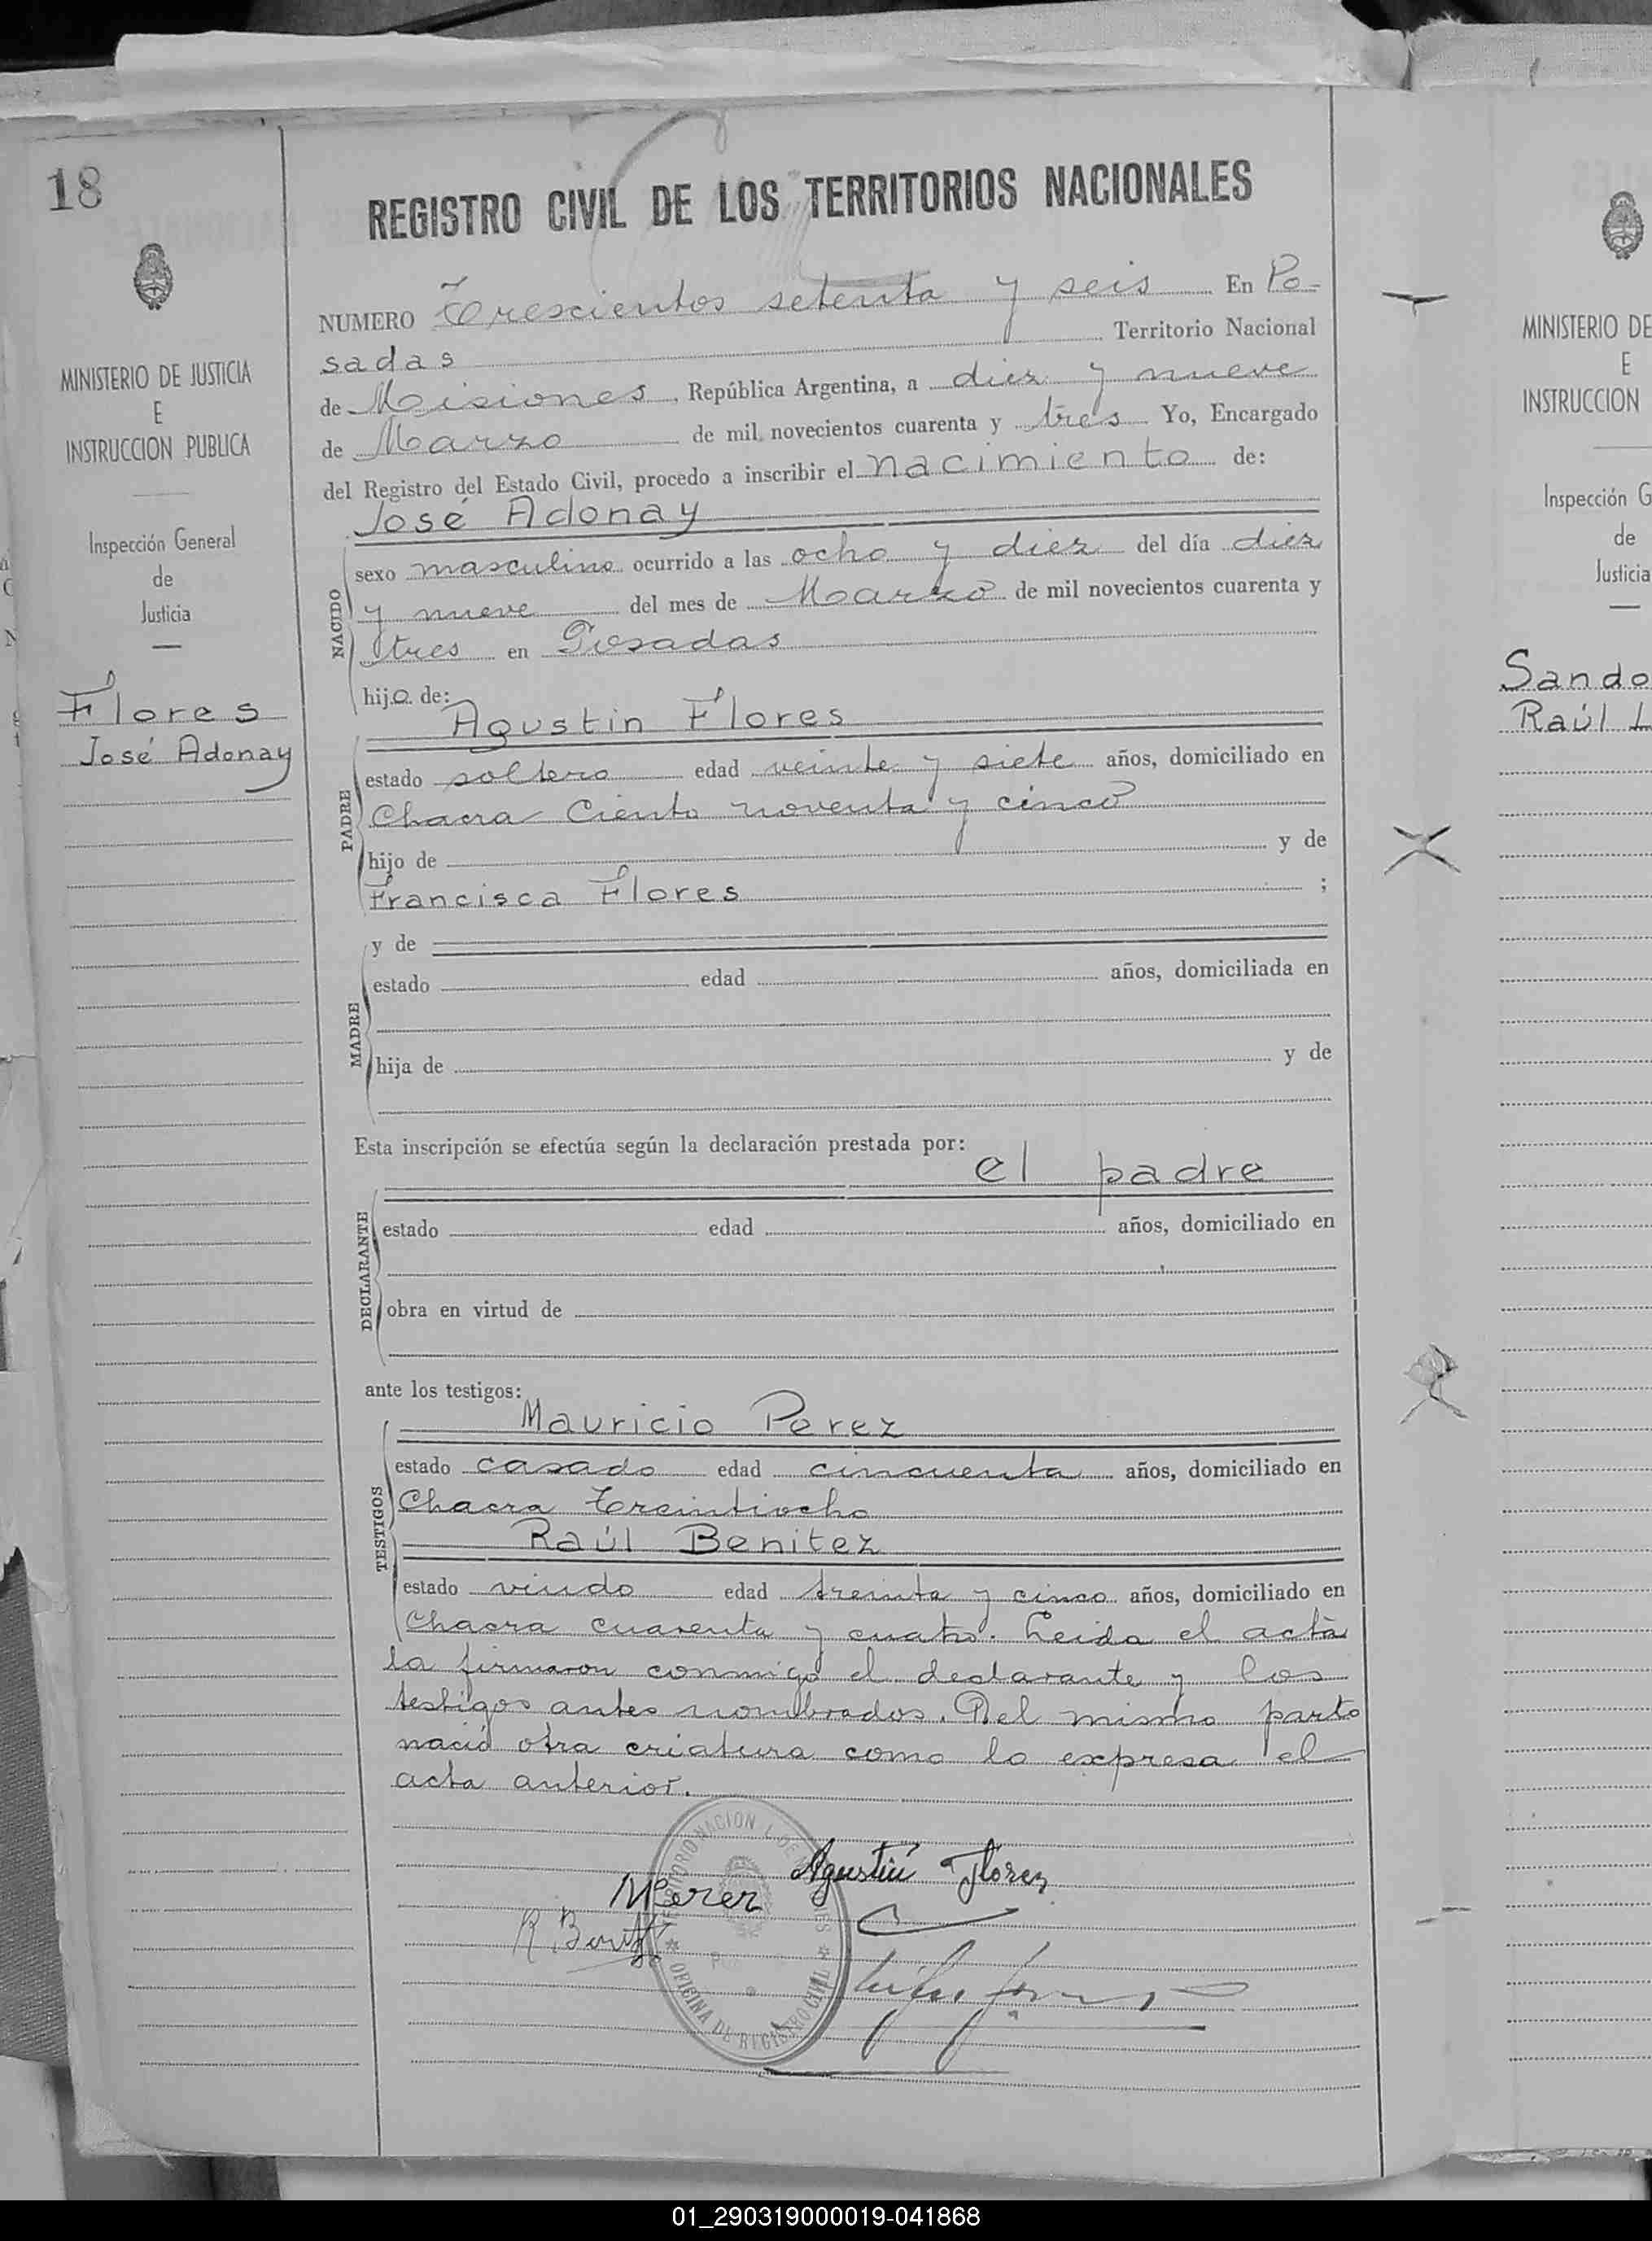 18
MINISTERIO DE JUSTICIA
E
INSTRUCCION PUBLICA
Inspección General
de
Justicia
Flores
José Adonay
REGISTRO CIVIL DE LOS TERRITORIOS NACIONALES
NUMERO Trescientos setenta y seis En Po-
sadas Territorio Nacional
de Misiones, República Argentina, a diez y nueve
de Marzo de mil novecientos cuarenta y tres Yo, Encargado
del Registro del Estado Civil, procedo a inscribir el nacimiento de:
José Adonay
NACIDO
sexo masculino ocurrido a las ocho y diez del día diez
y nueve del mes de Marzo de mil novecientos cuarenta y
tres en Posadas
hijo de:
Agustin Flores
PADRE
estado soltero edad veinte y siete años, domiciliado en
Chacra Ciento noventa y cinco
hijo de y de
Francisca Flores ;
y de
MADRE
estado edad años, domiciliada en
hija de y de
Esta inscripción se efectúa según la declaración prestada por:
el padre
DECLARANTE
estado edad años, domiciliado en
obra en virtud de
ante los testigos:
Mauricio Perez
TESTIGOS
estado casado edad cincuenta años, domiciliado en
Chacra Treintiocho
Raúl Benitez
estado viudo edad treinta y cinco años, domiciliado en
Chacra cuarenta y cuatro. Leida el acta
la firmaron conmigo el declarante y los
testigos antes nombrados. Del mismo parto
nació otra criatura como lo expresa el
acta anterior.
Agustin Florez
MPerez
OFICINA DE REGISTRO CIVIL
MINISTERIO DE
E
INSTRUCCION
Inspección G
de
Justicia
Sando
Raúl L
01_290319000019-041868